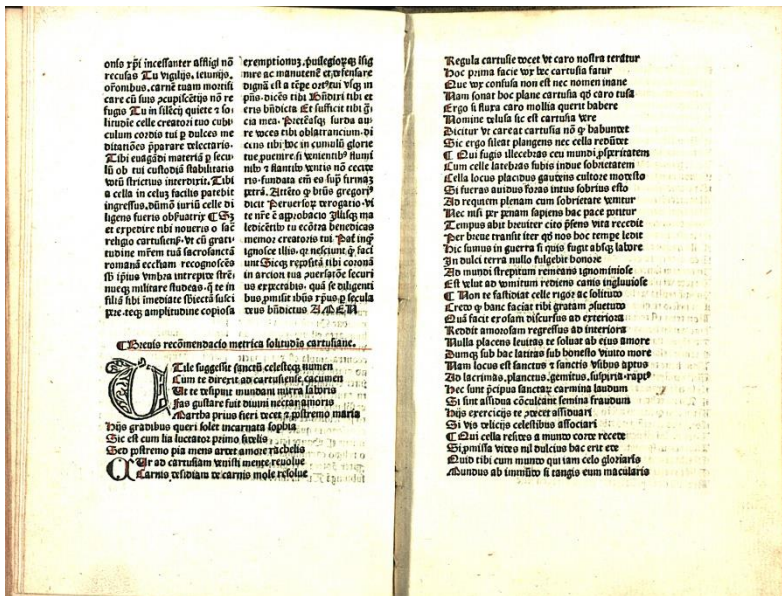 onis xp̄i incessanter affligi nō
recusas Tu vigilijs, ieiunijs,
orōnibus, carnē tuam mortifi
care cū suis ꝯcupiscētijs nō re
fugis Tu in silēcij quiete ⁊ so⸗
litudīe celle creatori tuo cubi⸗
culum cordis tui ꝑ dulces me
ditatiōes p̄parare delectaris.
Tibi euagādi materiā ꝑ secu⸗
lū ob tui custodiā stabilitatis
votū strictius interdixit. Tibi
a cella in celuꝫ facilis patebit
ingressus, dūmō iuriū celle di
ligens fueris obẜuatrix
et expedire tibi noueris o sac̄
religio cartusieñ. vt cū grati⸗
tudine mr̄em tuā sacrosanctā
romanā eccliam recognoscēs
sb̄ ip̄ius vmbra intrepide strē⸗
nueqꝫ militare studeas. q̄ te in
filiā sibi īmediate sb̄iectā susci
pere.teqꝫ amplitudine copiosa
exemptionuꝫ, p̄uilegiorꝫqꝫ īsig
nire ac manutenē et defensare
dignā est a tēpe ortꝰ tui vsqꝫ in
pn̄s. dicēs tibi Bn̄diri tibi et
eris bn̄dicta Et sufficit tibi ḡ
cia mea. surda au⸗
re voces tibi oblatrancium. di
cens tibi hoc in cumulū glorie
tue, puenire. si venientibꝰ flumī
nibꝰ ⁊ flantibꝰ ventis nō cecide
ris. fundata em̄ es sup̄ firmaꝫ
petrā. Attēto q̄ btūs gregoriꝰ
dicit Peruersoꝝ derogatio. vi
te nr̄e ē approbacio Jllisqꝫ ma
ledicētibꝰ tu ecōtra benedicas
memor creatoris tui Pat̄ inqꝫ
ignosce illis. qꝛ nesciunt q̄ faci
unt Sicqꝫ repositā tibi coronā
in arcion tua ꝯuersatōe securi
us expectabis. quā se diligenti
bus, ꝓmisit ih̄us xp̄us ꝑ secula
deus bn̄dictus AMEN
Breuis recōmendacio metrica solitudīs cartusiane.
UTile suggessit sanctū celestecqꝫ numen
Cum te direxit ad cartusiense cacumen
Ut te desipuit mundani mirra laboris
Fas gustare fuit diuini nectar amoris
Martha prius fieri decet ⁊ postremo maria
Hijs gradibus queri solet incarnata sophia
Sic est cum lia luctator primo fidelis
Sed postremo pia mens ardet amore rachelis
CUr ad cartusiam venisti mente reuolue
Carnis desidiam de carnis mole resolue
Regula cartusie docet vt caro nostra teratur
Hoc prima facie vox hec cartusia fatur
Que vox confusa non est nec nomen inane
Nam sonat hoc plane cartusia qd̄ caro tusa
Ergo si stura caro mollia querit habere
Nomine delusa sic est cartusia vere
Dicitur vt careat cartusia nō q̄ habundet
Sic ergo sileat plangens nec cella redūdet
Qui fugis illecebras ceu mundi ꝓsperitatem
Cum celle latebras subis indue sobrietatem
Cella locus placidus gaudens cultore modesto
Si fueras auidus foras intus sobrius esto
Ad requiem plenam cum sobrietate venitur
Nec nisi per penam sapiens hac pace potitur
Tempus abit breuiter cito p̄sens vita recedit
Per breue transit iter qd̄ nos hoc tempe ledit
Hic sumus in guerra si quis fugit absqꝫ labore
In dulci terra nullo fulgebit honore
Ad mundi strepitum remeans ignominiose
Est velut ad vomitum rediens canis ingluuiose
Non te fastidiat celle rigor ac solitudo
Credo q̄ banc faciat tibi gratam ꝯsuetudo
Quā facit exosam discursus ad exteriora
Reddit amorosam regressus ad interiora
Nulla placens leuitas te soluat ab eius amore
Dumqꝫ sub hac latitas sub honesto viuito more
Nam locus est sanctus ⁊ sanctis vsibus aptus
Ad lacrimas, planctus, gemitus, suspiria. raptꝰ
Hec sunt p̄cipua sanctaꝝ carmina laudum
Si sint assidua cōculcant semina fraudum
Hijs exercicijs te decet assiduari
Si vis delicijs celestibus associari
Qui cella resides a mundo corde recede
Si ꝓmissa vides nil dulcius hac erit ede
Quid tibi cum mundo qui iam celo gloriaris
Mundus ab immūdo si tangis eum macularis